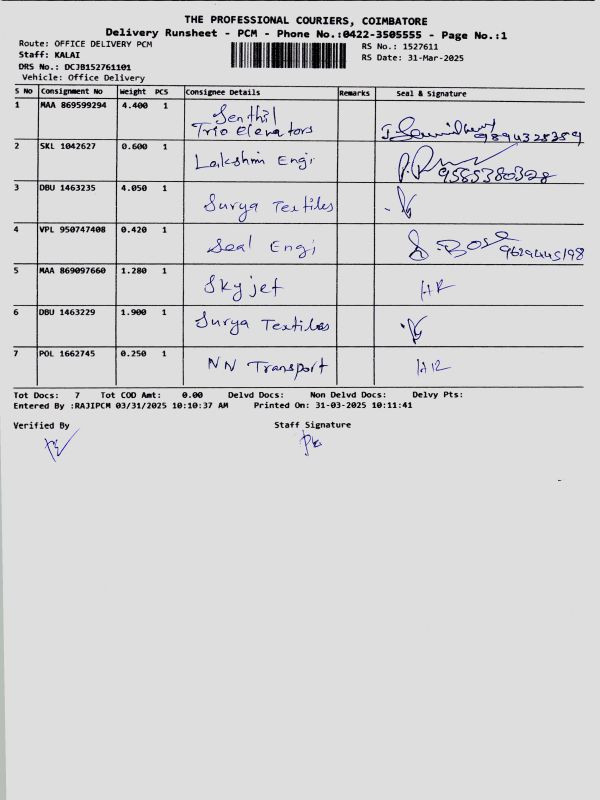 THE PROFESSIONAL COURIERS, COIMBATORE
Delivery Runsheet - PCM - Phone No.:0422-3505555 - Page No.:1
Route: OFFICE DELIVERY PCM
Staff: KALAI
DRS No.: DCJB152761101
Vehicle: Office Delivery
RS No.: 1527611
RS Date: 31-Mar-2025
S No Consignment No Weight PCS Consignee Details Remarks Seal & Signature
1 MAA 869599294 4.400 1 Senthil
Trio Elevators 9894328359
2 SKL 1042627 0.600 1 Lakshmi Engi 9585380328
3 DBU 1463235 4.050 1 Surya Textiles
4 VPL 950747408 0.420 1 Seal Engi S. Bose 9629445198
5 MAA 869097660 1.280 1 Skyjet HR
6 DBU 1463229 1.900 1 Surya Textiles
7 POL 1662745 0.250 1 NN Transport HR
Tot Docs: 7 Tot COD Amt: 0.00 Delvd Docs: Non Delvd Docs: Delvy Pts:
Entered By :RAJIPCM 03/31/2025 10:10:37 AM Printed On: 31-03-2025 10:11:41
Verified By Staff Signature